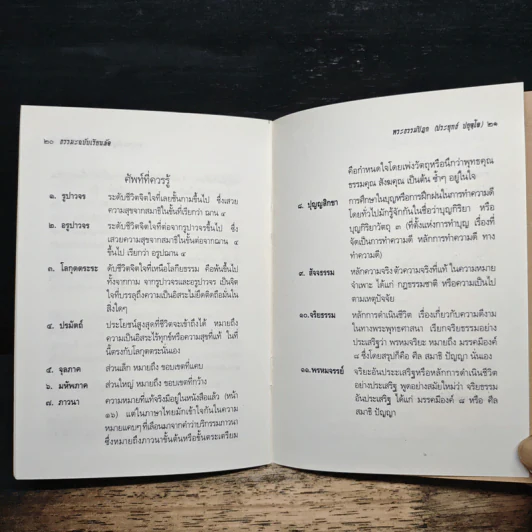 ๒๐ ธรรมะฉบับเรียนลัด
ศัพท์ที่ควรรู้
๑. รูปาวจร ระดับชีวิตจิตใจที่เลยชั้นกามขึ้นไป ซึ่งเสวย
ความสุขจากสมาธิในชั้นที่เรียกว่า ฌาน ๔
๒. อรูปาวจร ระดับชีวิตจิตใจที่ต่อจากรูปาวจรขึ้นไป ซึ่ง
เสวยความสุขจากสมาธิในชั้นต่อจากฌาน ๔
ขึ้นไป เรียกว่า อรูปฌาน ๔
๓. โลกุตตตระ ดับชีวิตจิตใจที่เหนือโลกียธรรม คือพ้นขึ้นไป
ทั้งจากกาม จากรูปาวจรและอรูปาวจร เป็นจิต
ใจที่บรรลุถึงความเป็นอิสระไม่ยึดติดถือมั่นใน
สิ่งใดๆ
๔. ปรมัตถ์ ประโยชน์สูงสุดที่ชีวิตจะเข้าถึงได้ หมายถึง
ความเป็นอิสระไร้ทุกข์หรือความสุขที่แท้ ในที่
นี้ตรงกับโลกุตตระนั่นเอง
๕. จุลภาค ส่วนเล็ก หมายถึง ขอบเขตที่แคบ
๖. มหัพภาค ส่วนใหญ่ หมายถึง ขอบเขตที่กว้าง
๗. ภาวนา ความหมายที่แท้จริงมีอยู่ในหนังสือแล้ว (หน้า
๑๖) แต่ในภาษาไทยมักเข้าใจกันในความ
หมายแคบๆ ที่เลือนมาจากคำว่าบริกรรมภาวนา
ซึ่งหมายถึงภาวนาขั้นต้นหรือขั้นตระเตรียม
พระธรรมปิฎก (ประยุทธ์ ปยุตฺโต) ๒๑
คือกำหนดใจโดยเพ่งวัตถุหรือนึกว่าพุทธคุณ
ธรรมคุณ สังฆคุณ เป็นต้น ซ้ำๆ อยู่ในใจ
๘. ปุญญสิกขา การศึกษาในบุญหรือการฝึกฝนในการทำความดี
โดยทั่วไปมักรู้จักกันในชื่อว่าบุญกิริยา หรือ
บุญกิริยาวัตถุ ๓ (ที่ตั้งแห่งการทำบุญ เรื่องที่
จัดเป็นการทำความดี หลักการทำความดี ทาง
ทำความดี)
๙. สัจธรรม หลักความจริง ตัวความจริงที่แท้ ในความหมาย
จำเพาะ ได้แก่ กฎธรรมชาติ หรือความเป็นไป
ตามเหตุปัจจัย
๑๐.จริยธรรม หลักการดำเนินชีวิต เรื่องเกี่ยวกับความดีงาม
ในทางพระพุทธศาสนา เรียกจริยธรรมอย่าง
ประเสริฐว่า พรหมจริยะ หมายถึง มรรคมีองค์
๘ ซึ่งโดยสรุปก็คือ ศีล สมาธิ ปัญญา นั่นเอง
๑๑.พรหมจรรย์ จริยะอันประเสริฐหรือหลักการดำเนินชีวิต
อย่างประเสริฐ พูดอย่างสมัยใหม่ว่า จริยธรรม
อันประเสริฐ ได้แก่ มรรคมีองค์ ๘ หรือ ศีล
สมาธิ ปัญญา